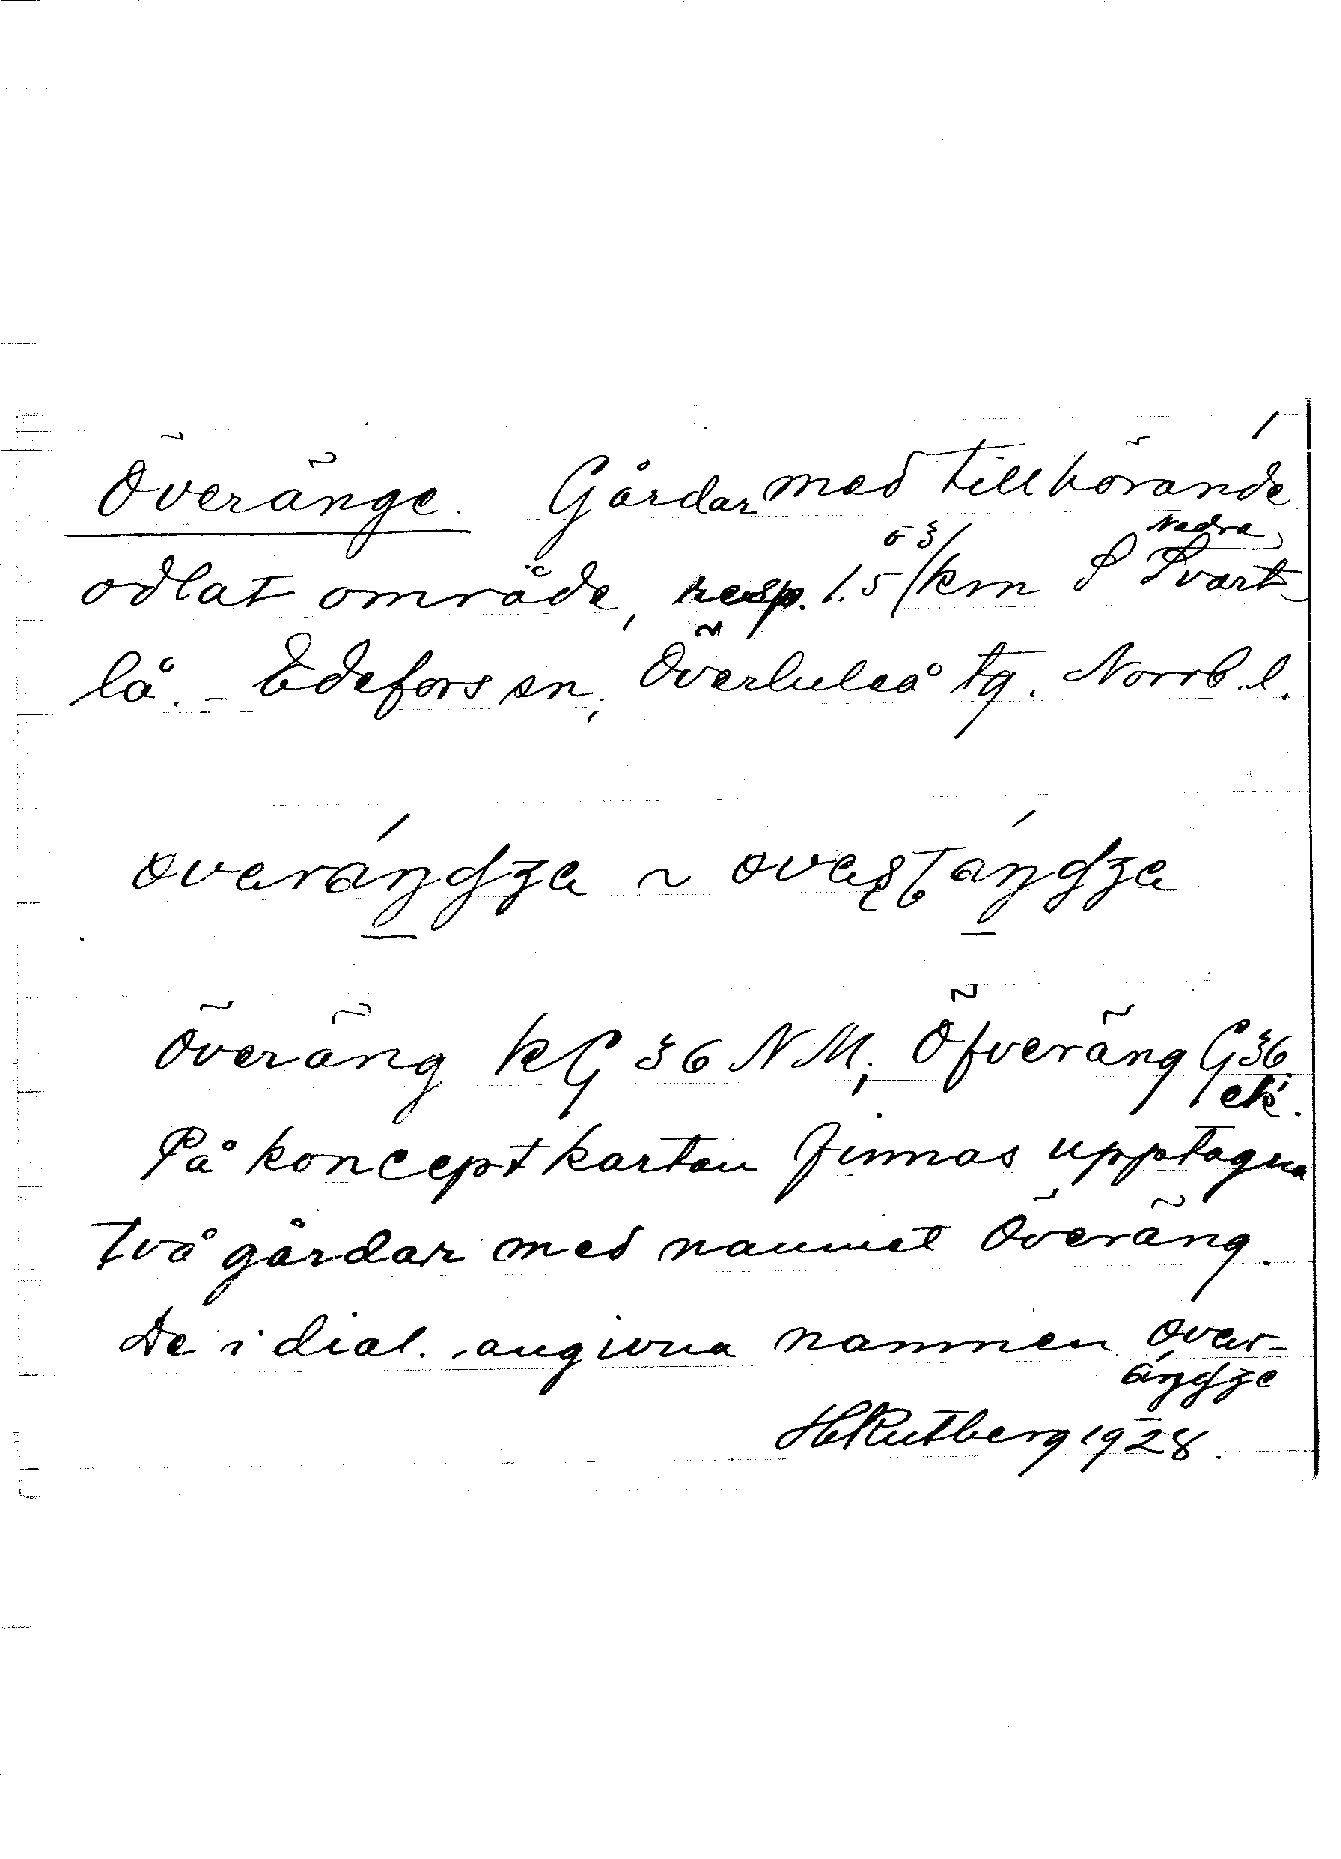 Överänge. Gårdar med tillhörande
odlat område, resp. 1.5 o 3 km S Nedra Svart-
lå. - Edefors sn, Överluleå tg. Norrb. l.
Överäng kG 36 NM; Öfveräng G 36 ek.
På konceptkartan finnas upptagna
två gårdar med namnet Överäng.
De i dial. angivna namnen över-
H Rutberg 1928.